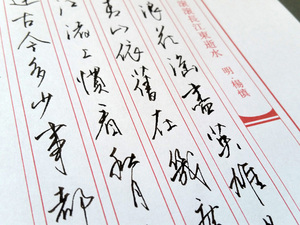 滾滾長江東逝水 明·楊慎
浪花淘盡英雄
青山依舊在幾
江渚上慣看秋月
古今多少事都